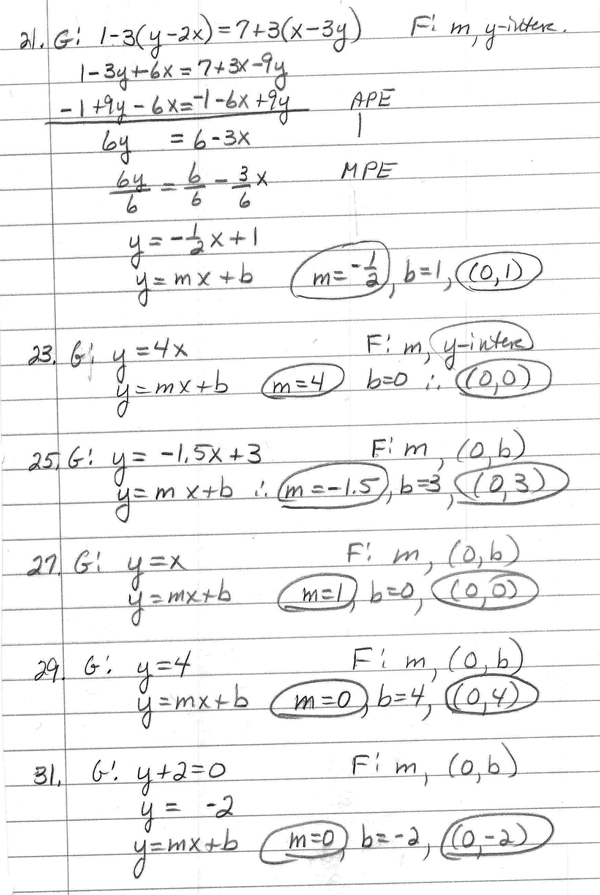 21. G: 1-3(y-2x)=7+3(x-3y) F: m, y-interc.
1-3y+6x=7+3x-9y
-1+9y-6x=-1-6x+9y APE
6y = 6-3x |
6y/6 = 6/6 - 3/6 x MPE
y=-1/2x+1
y=mx+b m=-1/2, b=1, (0,1)
23. G: y=4x F: m, y-interc
y=mx+b m=4 b=0 ∴ (0,0)
25. G: y= -1.5x+3 F: m, (0,b)
y=mx+b ∴ m=-1.5, b=3, (0,3)
27. G: y=x F: m, (0,b)
y=mx+b m=1, b=0, (0,0)
29. G: y=4 F: m, (0,b)
y=mx+b m=0, b=4, (0,4)
31. G: y+2=0 F: m, (0,b)
y = -2
y=mx+b m=0, b=-2, (0,-2)